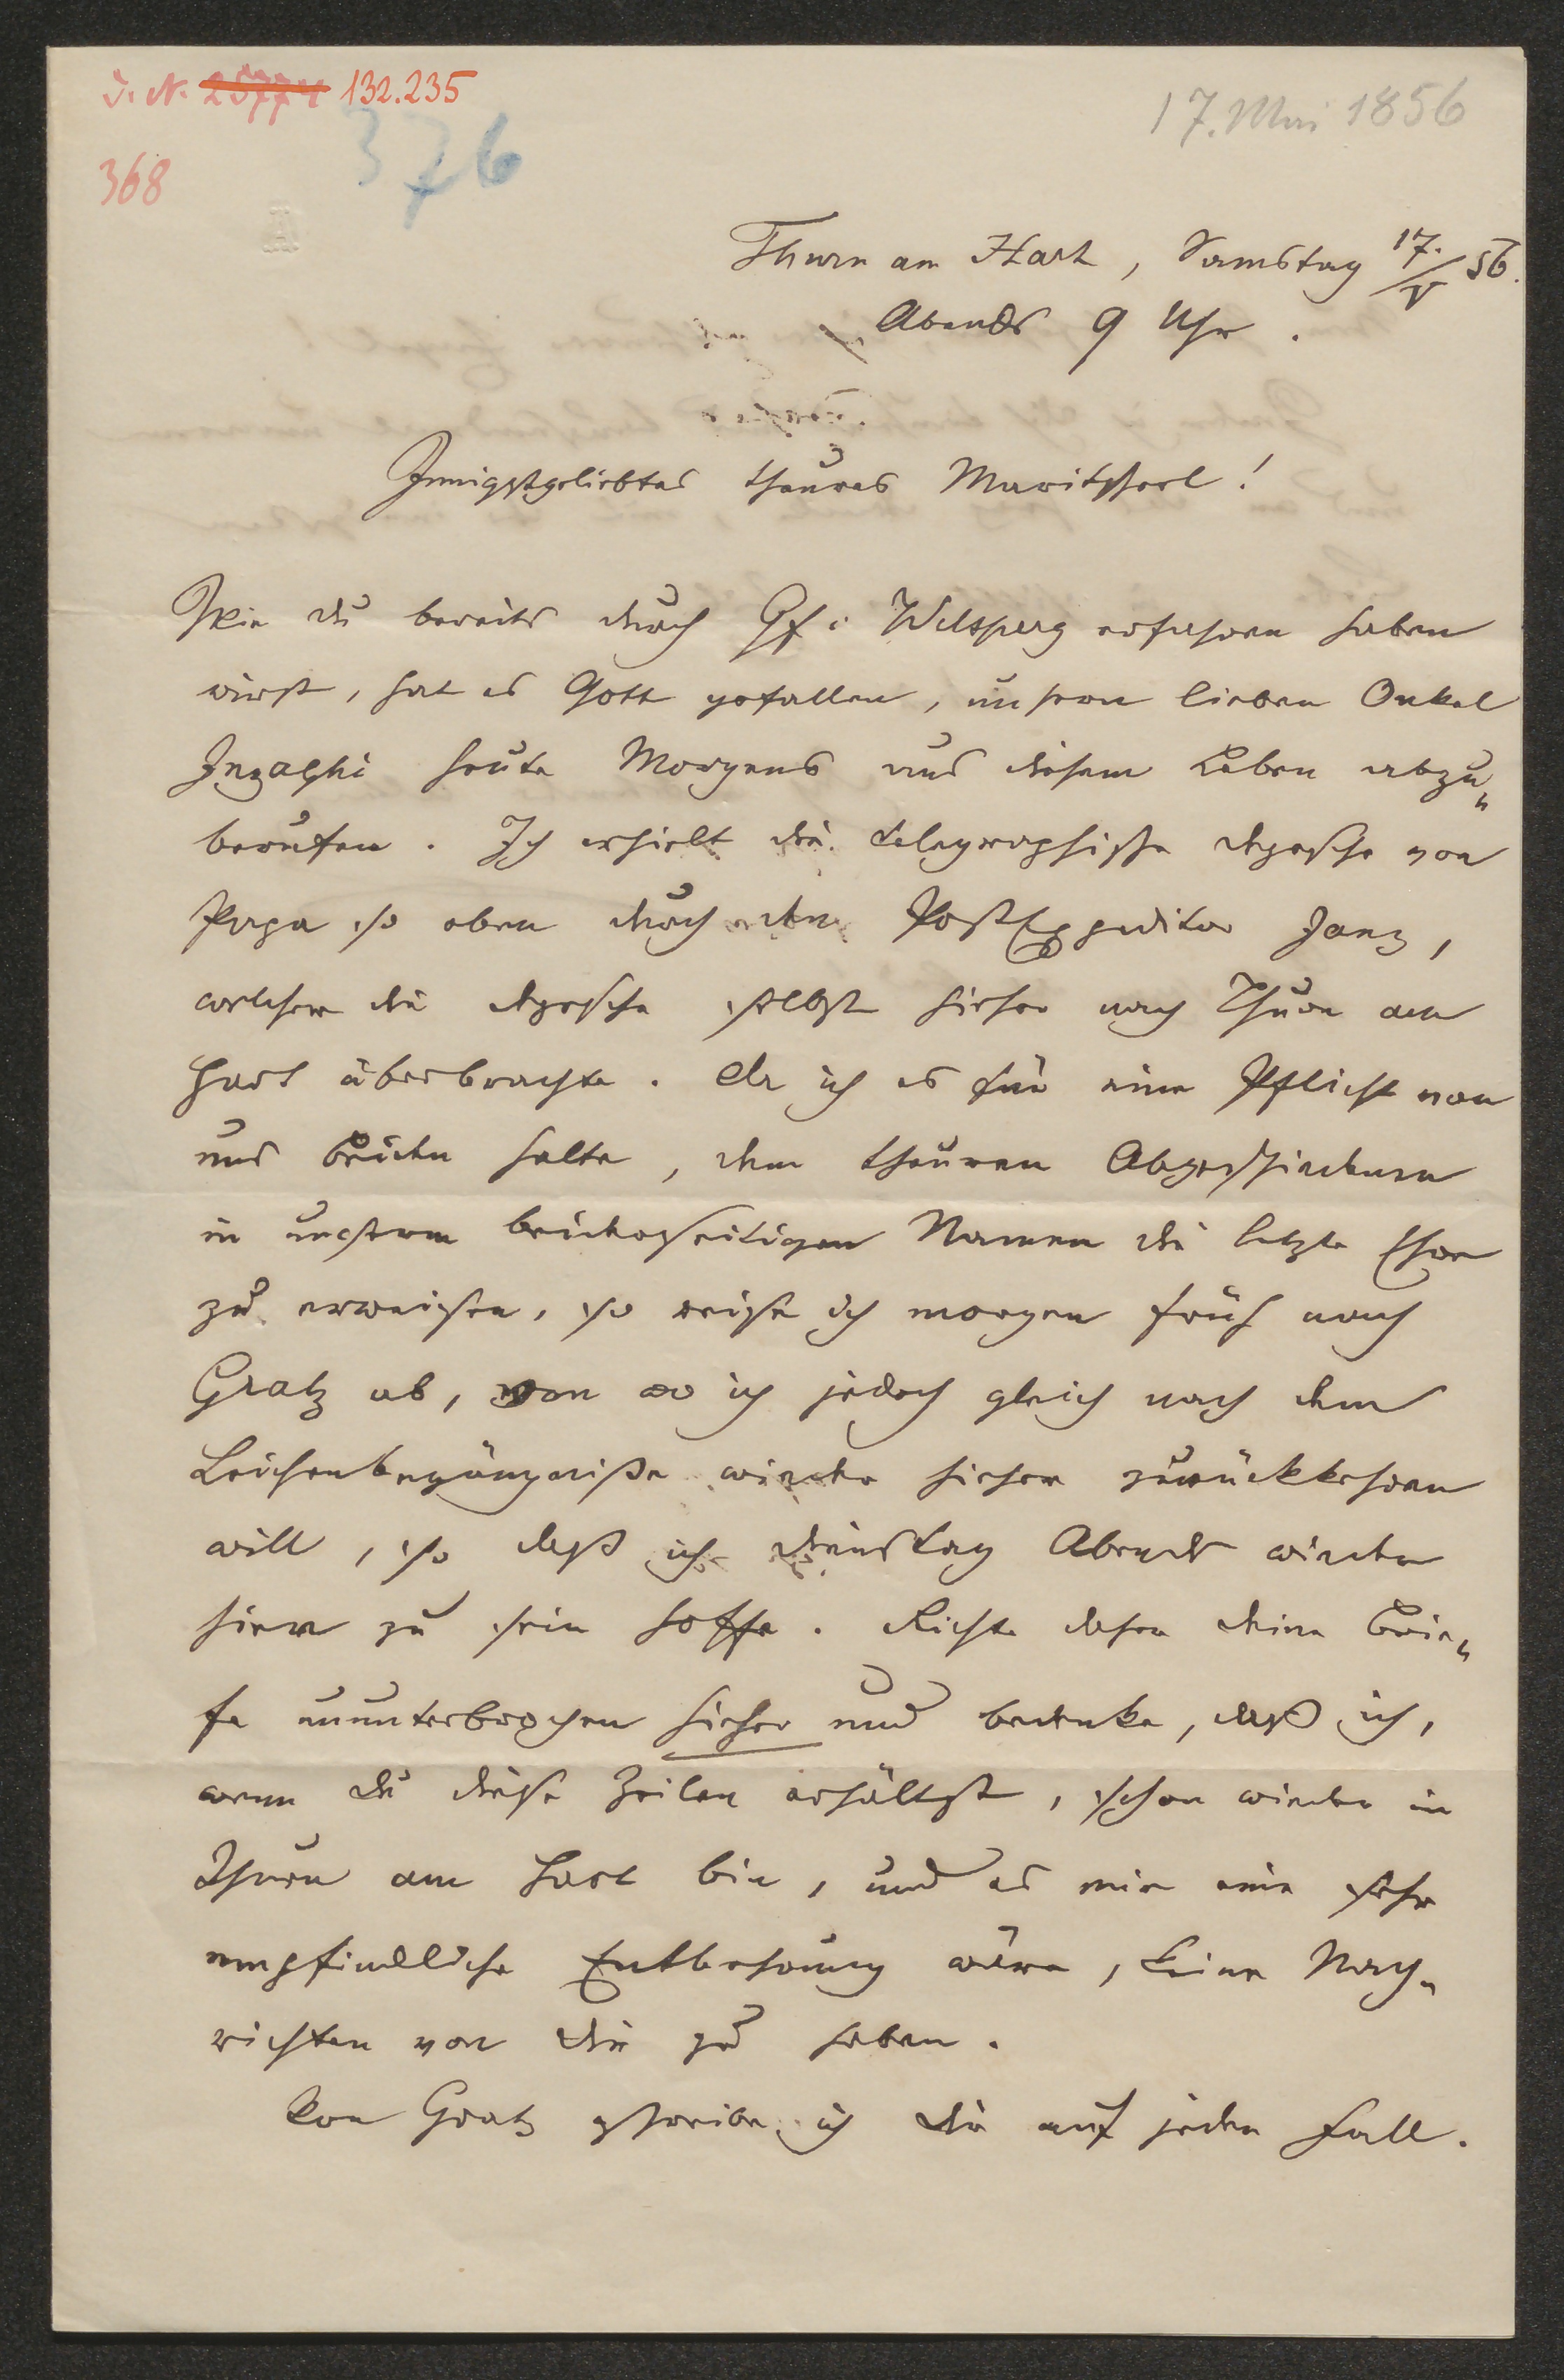 J. N. 25774 132.235
376
17. Mai 1856
368
A
Thurn am Hart, Samstag 17./V 56.
Abends 9 Uhr.
Innigstgeliebtes theures Maritscherl!
Wie du bereits durch Gf. Welsperg erfahren haben
wirst, hat es Gott gefallen, unseren lieben Onkel
Inzaghi heute Morgens aus diesem Leben abzu„
berufen. Ich erhielt die telegraphische Depesche von
Papa so eben durch den PostExpeditor Janz,
welcher die Depesche selbst hieher nach Thurn am
Hart überbrachte. Da ich es für eine Pflicht von
uns Beiden halte, dem theuren Abgeschiedenen
in unserem beiderseitigen Namen die letzte Ehre
zu erweisen, so reise ich morgen früh nach
Gratz ab, von wo ich jedoch gleich nach dem
Leichenbegängniße wieder hieher zurückkehren
will, so daß ich Dienstag Abends wieder
hier zu sein hoffe. Richte daher deine Brie„
fe ununterbrochen hieher und bedenke, daß ich,
wenn du diese Zeilen erhältst, schon wieder in
Thurn am Hart bin, und es mir eine sehr
empfindliche Entbehrung wäre, keine Nach„
richten von dir zu haben.
Von Gratz schreibe ich dir auf jeden Fall.